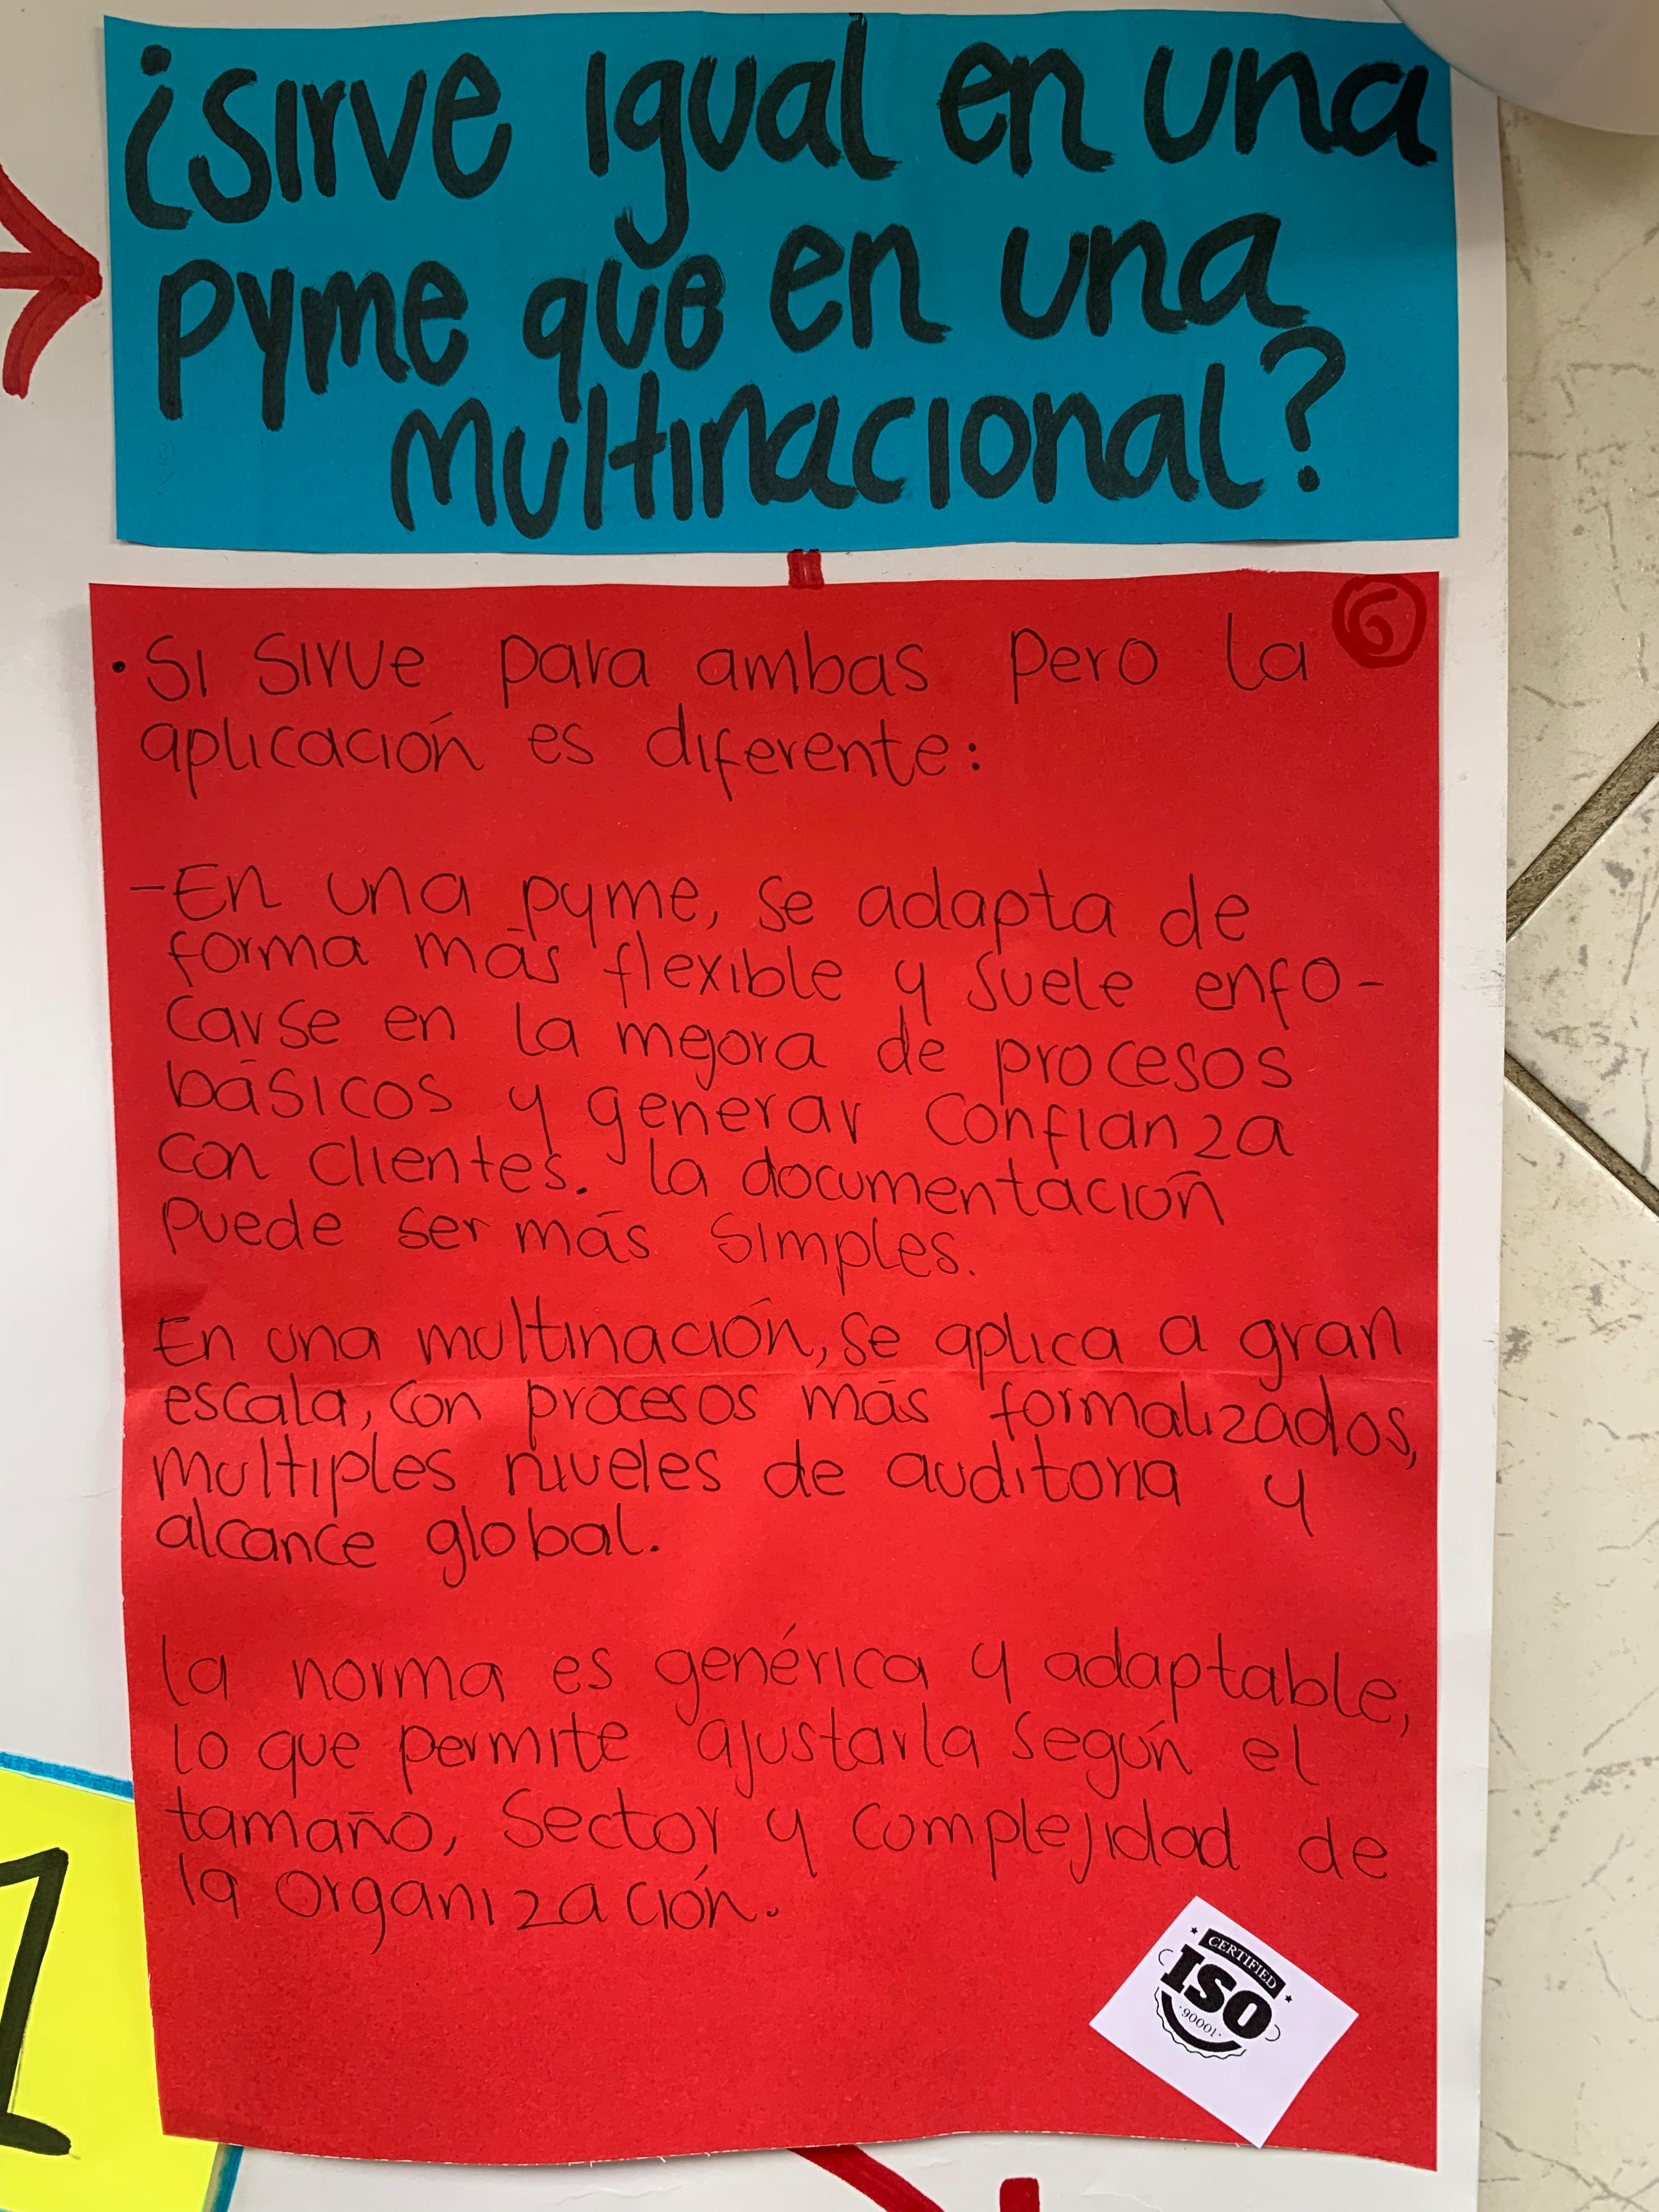 ¿Sirve igual en una
pyme que en una
multinacional?
6
• Si sirve para ambas pero la
aplicación es diferente:
- En una pyme, se adapta de
forma más flexible y suele enfo-
carse en la mejora de procesos
básicos y generar confianza
con clientes. la documentación
puede ser más simples.
En una multinación, se aplica a gran
escala, con procesos más formalizados,
multiples niveles de auditoria y
alcance global.
la norma es genérica y adaptable,
lo que permite ajustarla según el
tamaño, sector y complejidad de
la organización.
CERTIFIED
ISO
·90001·
1